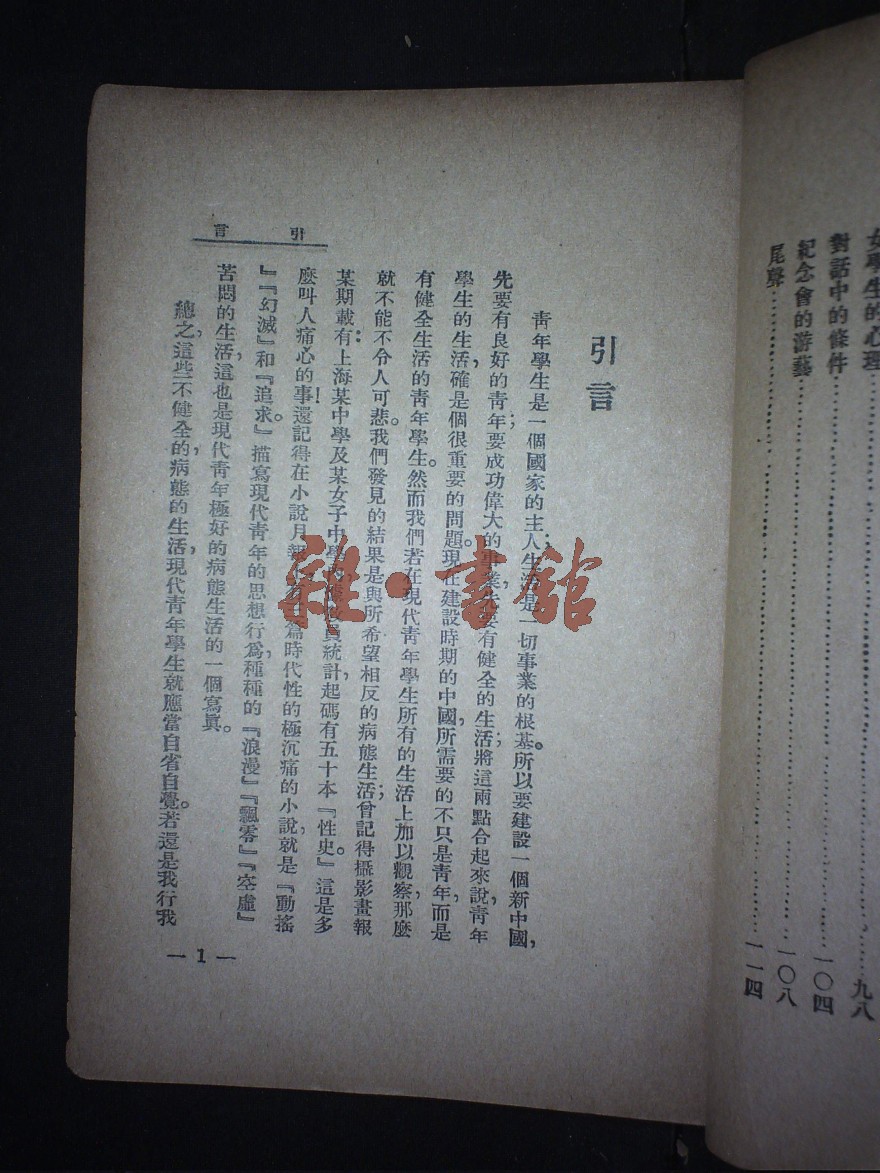 女學生的心理……九八
對話中的條件……一〇四
紀念會的游藝……一〇八
尾聲……一一四
引言
青年學生是一個國家的主人;生活是一切事業的根基。所以要建設一個新中國,
先要有良好的青年;要成功偉大的事業,先要有健全的生活;將這兩點合起來說,青年
學生的生活,確是個很重要的問題。現在建設時期的中國,所需要的不只是青年,而是
有健全生活的青年學生。然而我們若在現代青年學生所有的生活上加以觀察,那麼
就不能不令人可悲。我們發見的結果是與所希望相反的病態生活;曾記得攝影畫報
某期載有:上海某中學及某女子中學 員統計,起碼有五十本『性史』。這是多
麼叫人痛心的事!還記得在小說月報 篇時代性的極沉痛的小說,就是『動搖
』『幻滅』和『追求』。描寫現代青年的思想行為,種種的『浪漫』『飄零』『空虛』
苦悶的生活,這也是現代青年極好的病態生活的一個寫真。
總之,這些不健全的,病態的生活,現代青年學生就應當自省自覺。若還是我行我
引言
—1—
雜·書館